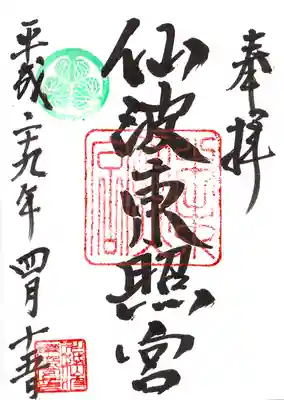 奉拝
仙波東照宮
平成二十九年四月十五日